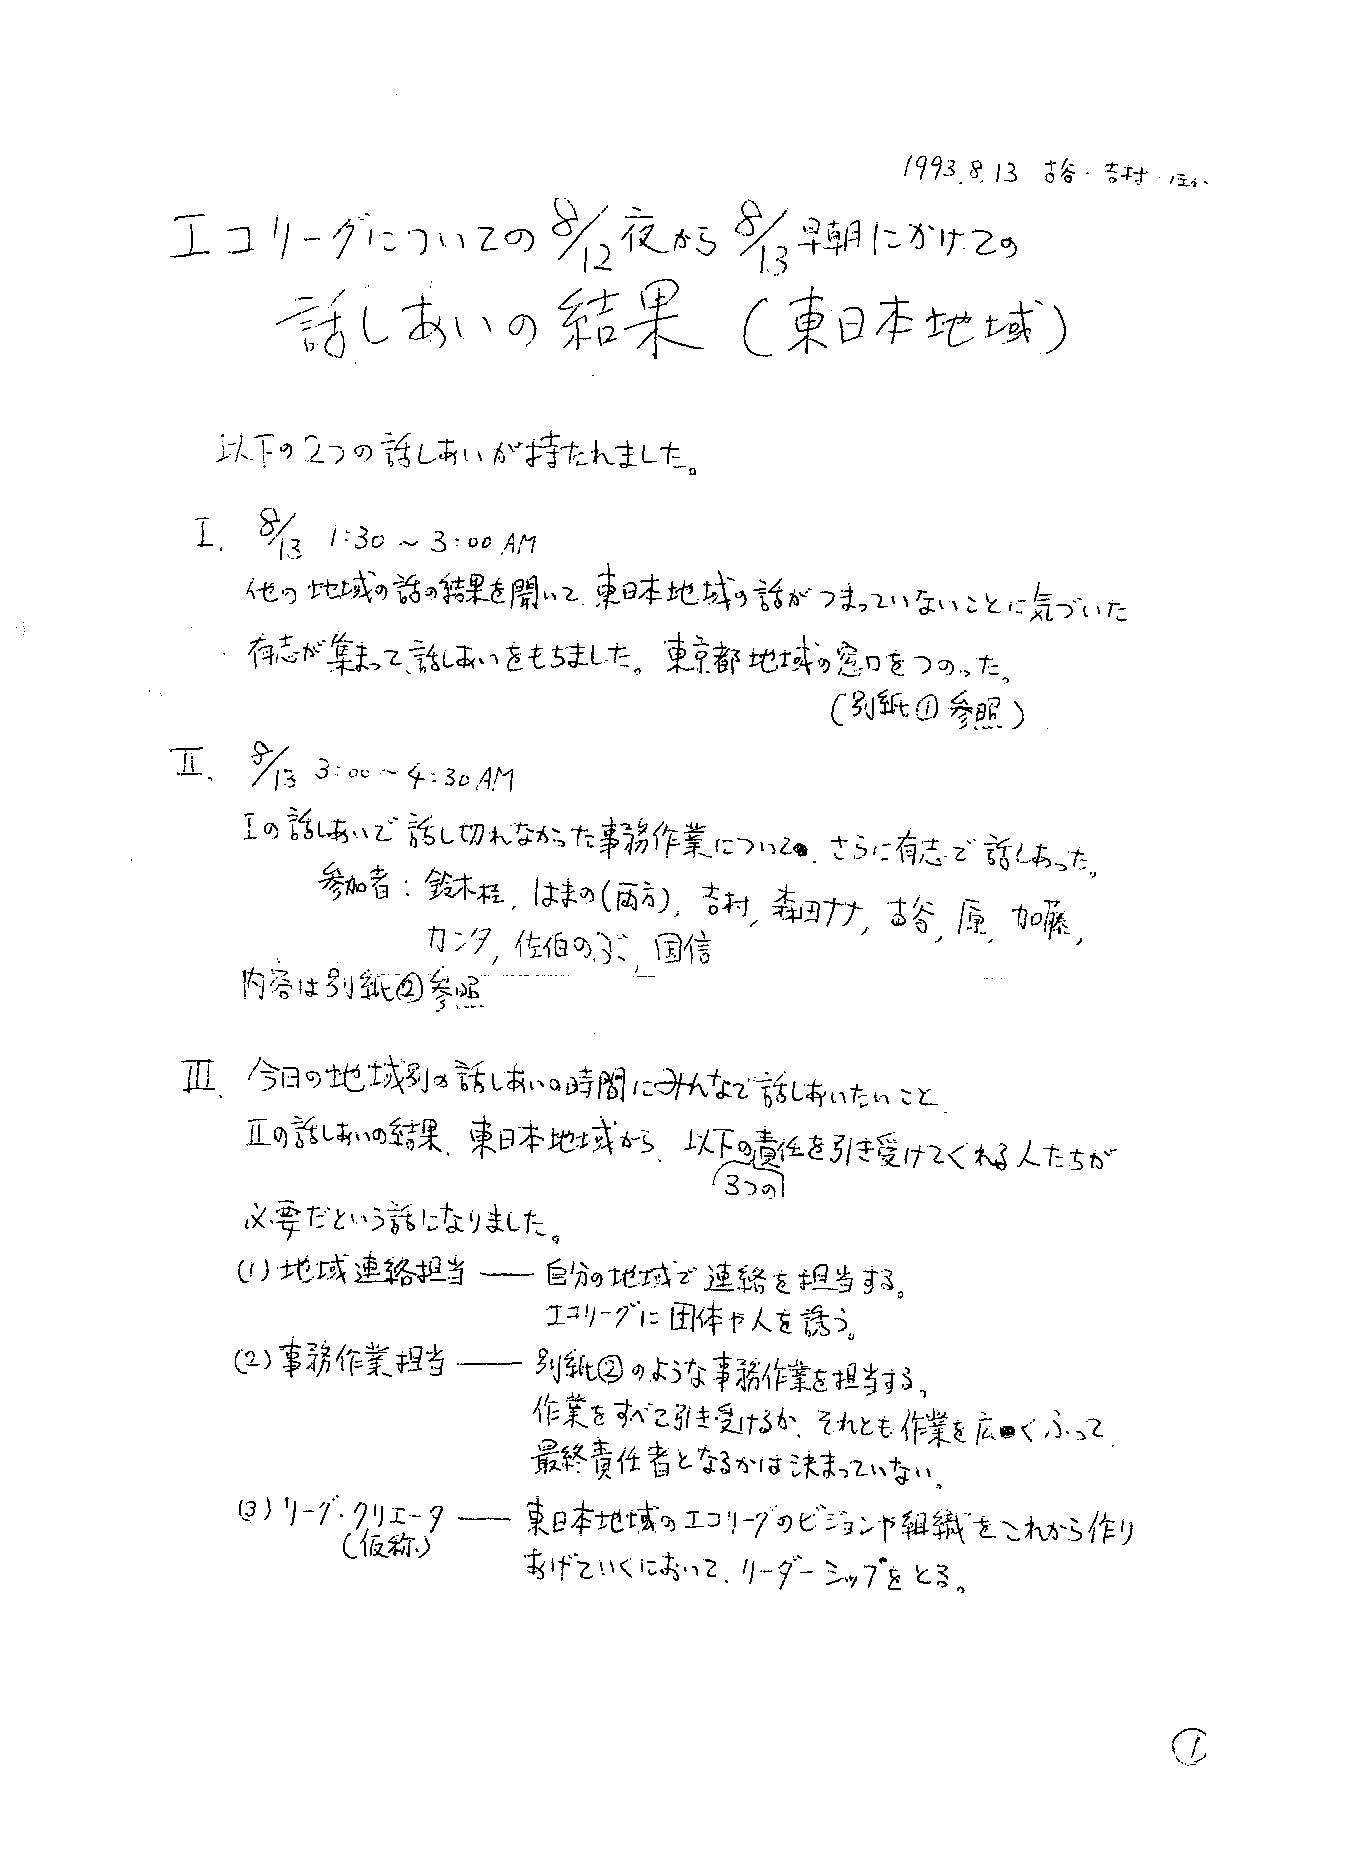 1993.8.13 古谷・吉村・ほか
エコリーグについての8/12夜から8/13早朝にかけての
話しあいの結果(東日本地域)
以下の2つの話しあいが持たれました。
I. 8/13 1:30~3:00AM
他の地域の話の結果を聞いて、東日本地域の話がつまっていないことに気づいた
有志が集まって、話しあいをもちました。東京都地域の窓口をつのった。
(別紙①参照)
II. 8/13 3:00~4:30AM
Iの話しあいで話し切れなかった事務作業について、さらに有志で話しあった。
参加者:鈴木桂, はまの(両方), 吉村, 森田ナナ, 古谷, 原, 加藤,
カンタ, 佐伯のぶ, 国信
内容は別紙②参照
III. 今日の地域別の話しあいの時間にみんなで話しあいたいこと
IIの話しあいの結果、東日本地域から、以下の責任を引き受けてくれる人たちが
3つの
必要だという話になりました。
(1)地域連絡担当 ── 自分の地域で連絡を担当する。
エコリーグに団体や人を誘う。
(2)事務作業担当 ── 別紙②のような事務作業を担当する。
作業をすべて引き受けるか、それとも作業を広くふって
最終責任者となるかは決まっていない。
(3)リーグ・クリエータ ── 東日本地域のエコリーグのビジョンや組織をこれから作り
(仮称)
あげていくにおいて、リーダーシップをとる。
①